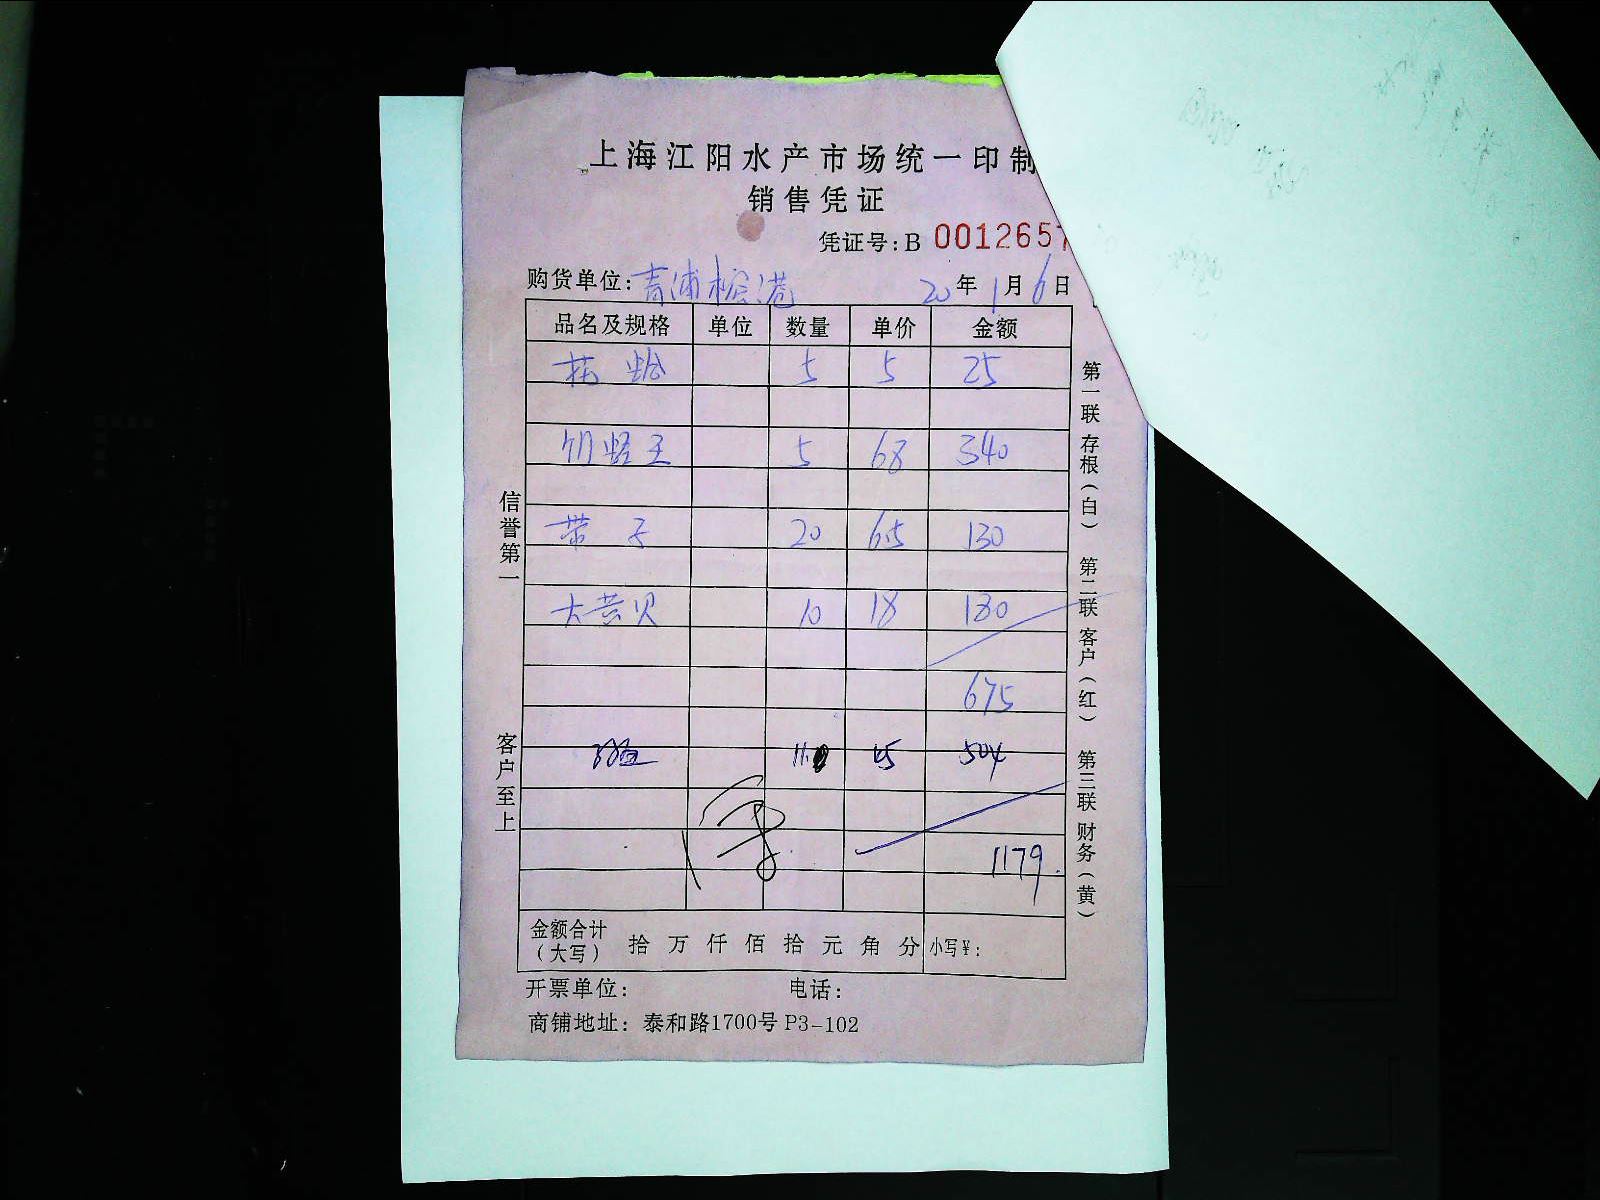 上海江阳水产市场统一印制
销售凭证
凭证号:B 0012657
购货单位:青浦 港 20年1月6日
品名及规格 单位 数量 单价 金额
5 5 25
蛏王 5 68 340
带子 20 6.5 130
大黄贝 10 18 180
675
11. 45 504
1179.
金额合计
(大写) 拾 万 仟 佰 拾 元 角 分 小写¥:
开票单位: 电话:
商铺地址: 泰和路1700号 P3-102
信誉第一
客户至上
第一联 存根(白)
第二联 客户(红)
第三联 财务(黄)